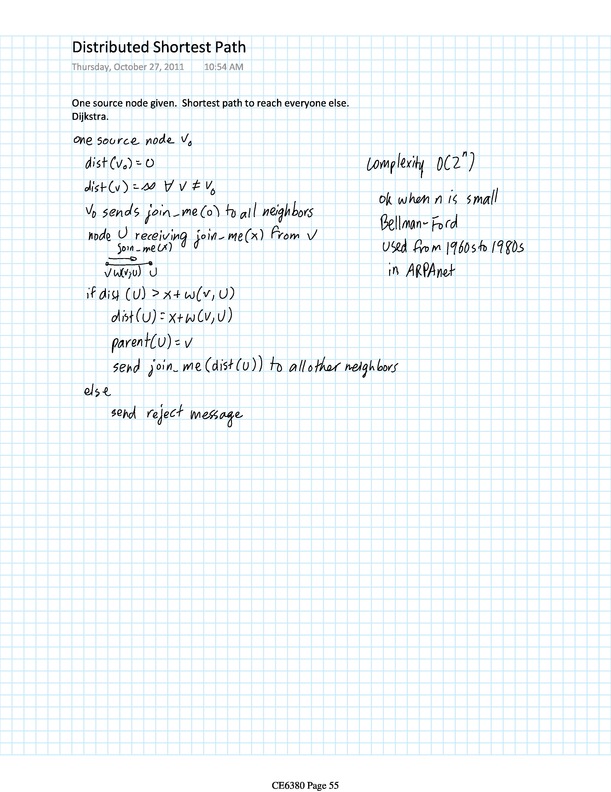 Distributed Shortest Path
Thursday, October 27, 2011 10:54 AM
One source node given. Shortest path to reach everyone else.
Dijkstra.
one source node v₀
dist(v₀)=0
dist(v)=∞ ∀ v ≠ v₀
v₀ sends join_me(0) to all neighbors
node u receiving join_me(x) from v
join_me(x)
v w(v,u) u
if dist (u) > x+w(v,u)
dist(u)=x+w(v,u)
parent(u)=v
send join_me(dist(u)) to all other neighbors
else
send reject message
complexity O(2ⁿ)
ok when n is small
Bellman-Ford
used from 1960s to 1980s
in ARPAnet
CE6380 Page 55